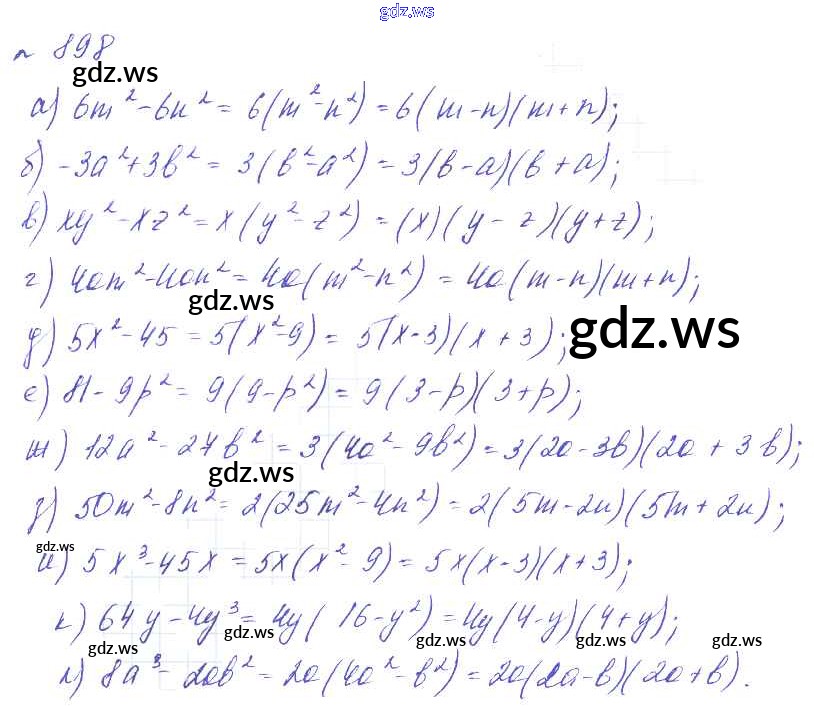 gdz.ws
№ 898
gdz.ws
а) 6m² - 6n² = 6(m² - n²) = 6(m - n)(m + n);
б) -3a² + 3b² = 3(b² - a²) = 3(b - a)(b + a);
в) xy² - xz² = x(y² - z²) = (x)(y - z)(y + z);
г) 4am² - 4an² = 4a(m² - n²) = 4a(m - n)(m + n);
gdz.ws gdz.ws
д) 5x² - 45 = 5(x² - 9) = 5(x - 3)(x + 3);
е) 81 - 9p² = 9(9 - p²) = 9(3 - p)(3 + p);
ж) 12a² - 27b² = 3(4a² - 9b²) = 3(2a - 3b)(2a + 3b);
gdz.ws
з) 50m² - 8n² = 2(25m² - 4n²) = 2(5m - 2n)(5m + 2n);
gdz.ws
и) 5x³ - 45x = 5x(x² - 9) = 5x(x - 3)(x + 3);
к) 64y - 4y³ = 4y(16 - y²) = 4y(4 - y)(4 + y);
gdz.ws gdz.ws gdz.ws gdz.ws
л) 8a³ - 2ab² = 2a(4a² - b²) = 2a(2a - b)(2a + b).